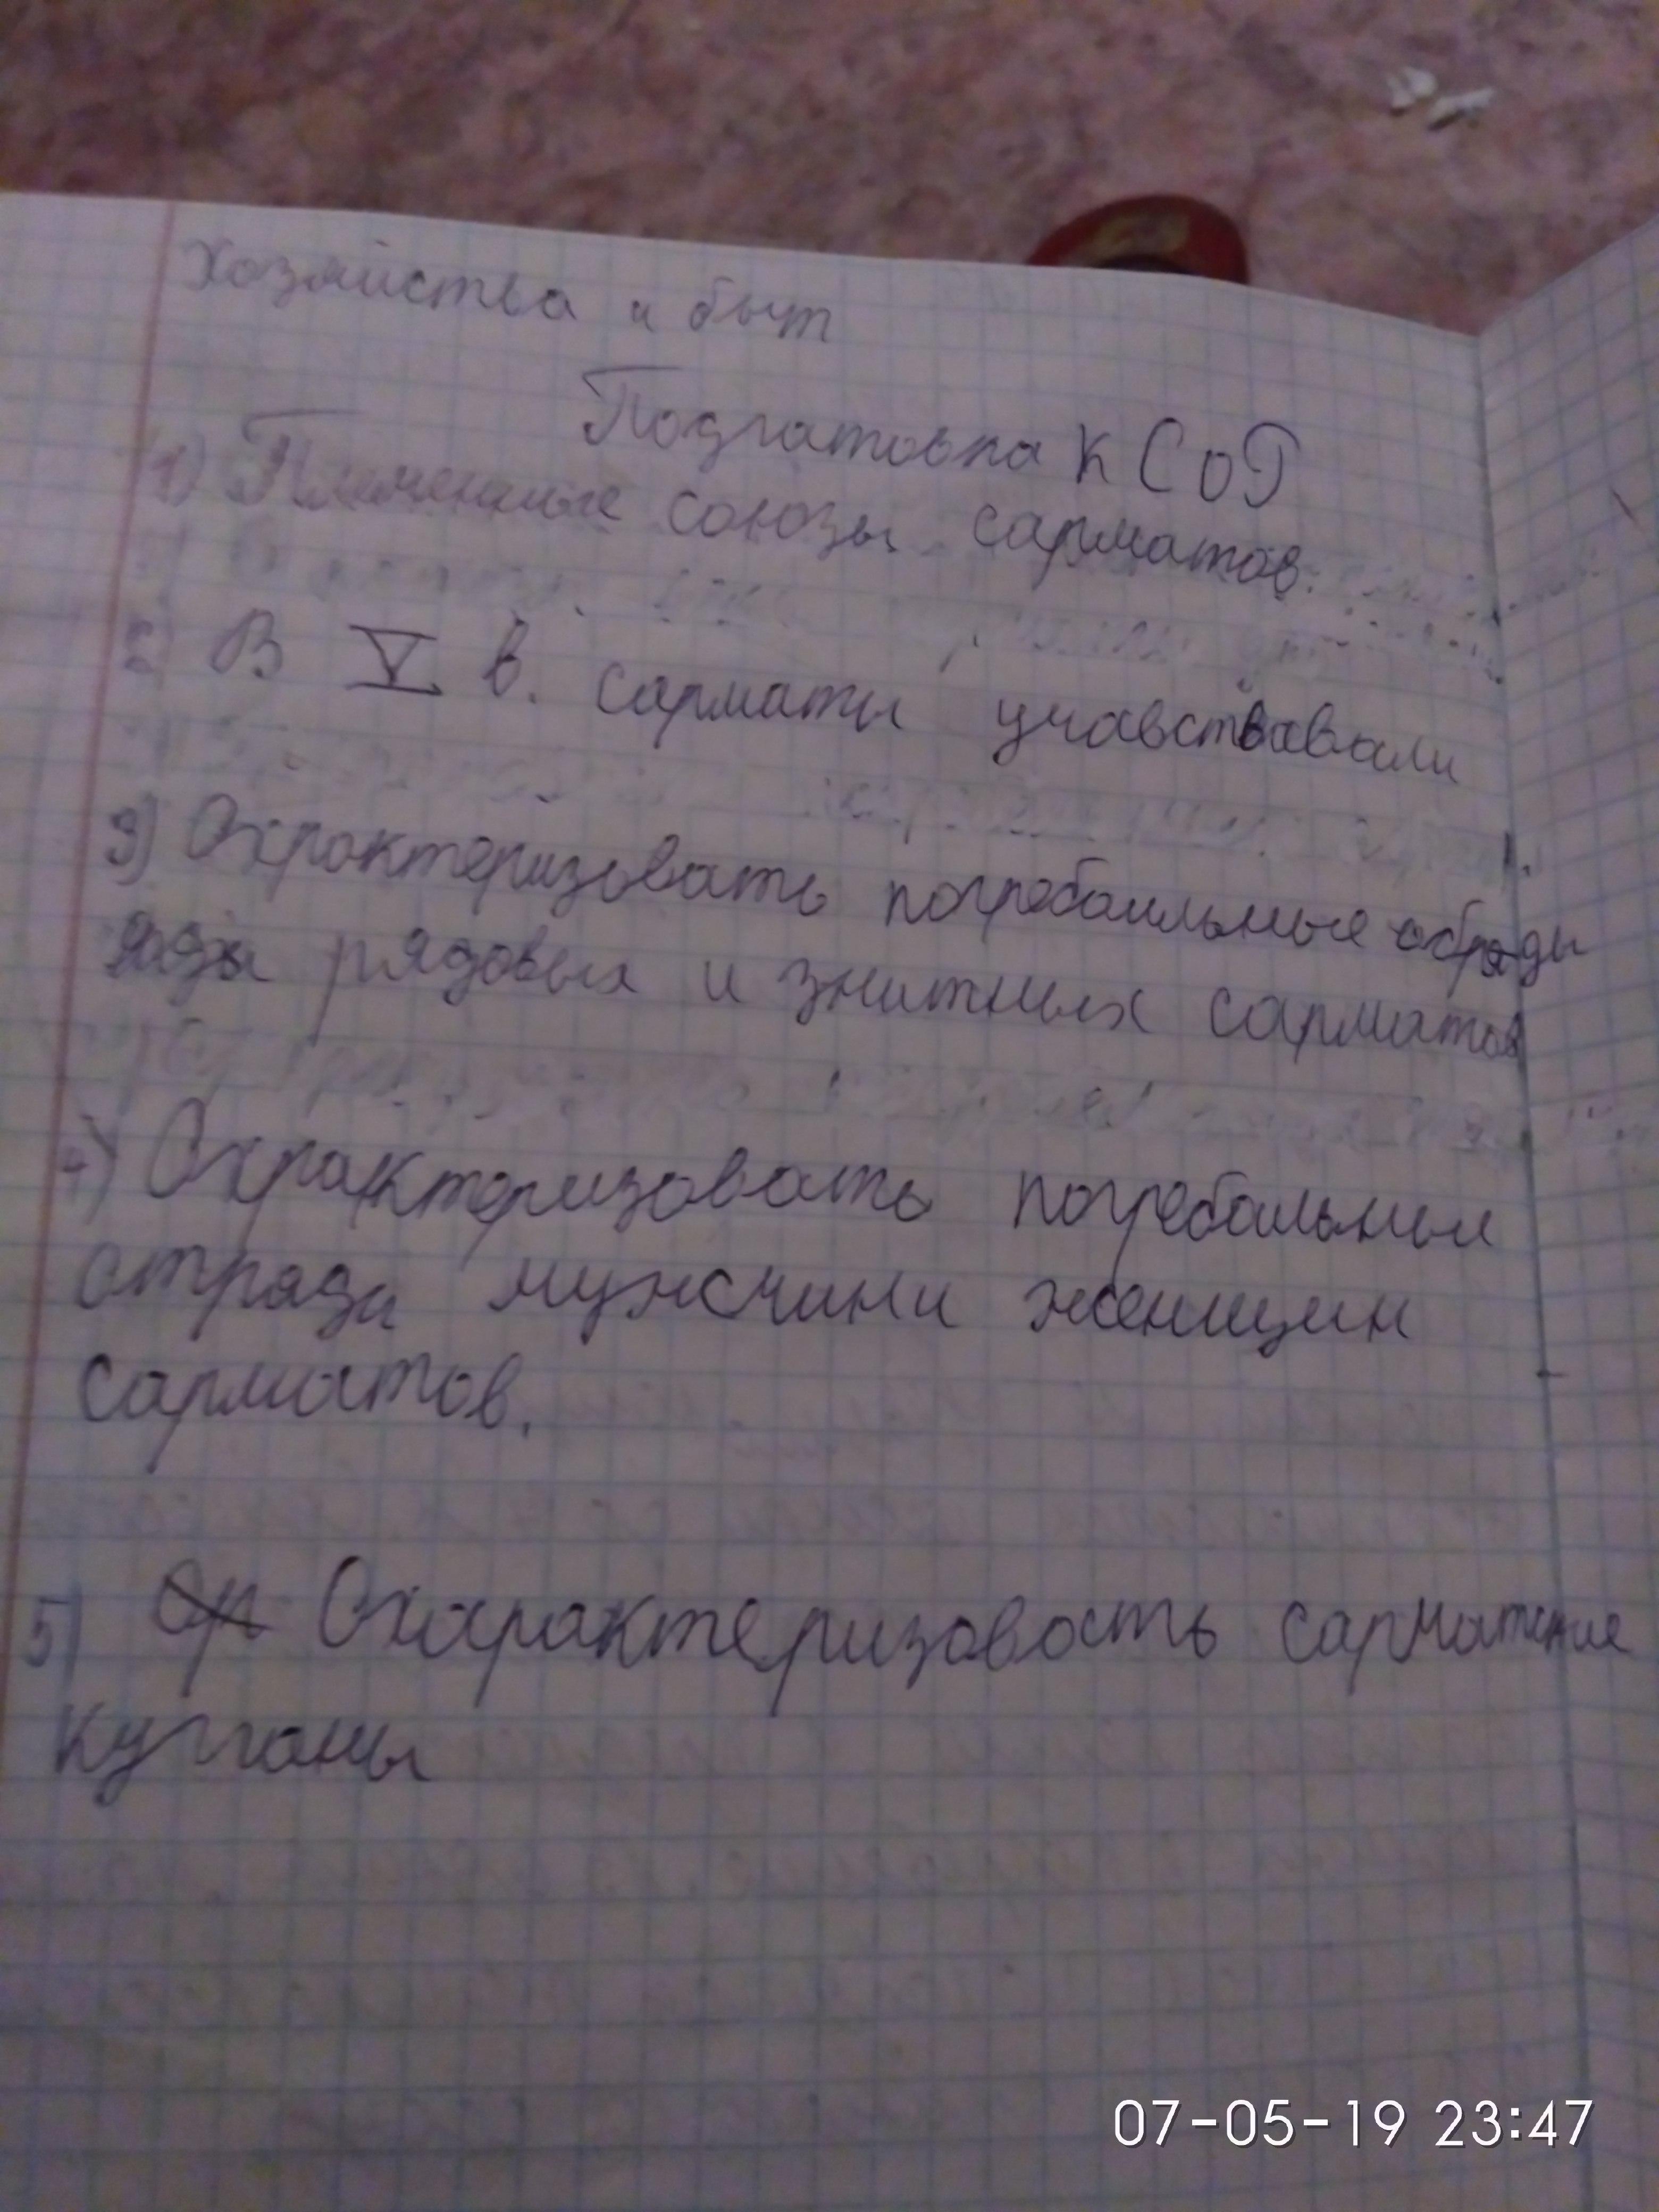 Хозяйства и быт
Подгатовка к СоР
1) Племенные союзы сарматов.
2) В V в. сарматы учавствавали
3) Охрактеризовать погребальные обряды
рядовых и знитных сарматов
4) Охрактеризовать погребальные
отряды мужсчини женщин
сарматов.
5) Охарактеризовость сарматские
курганы
07-05-19 23:47